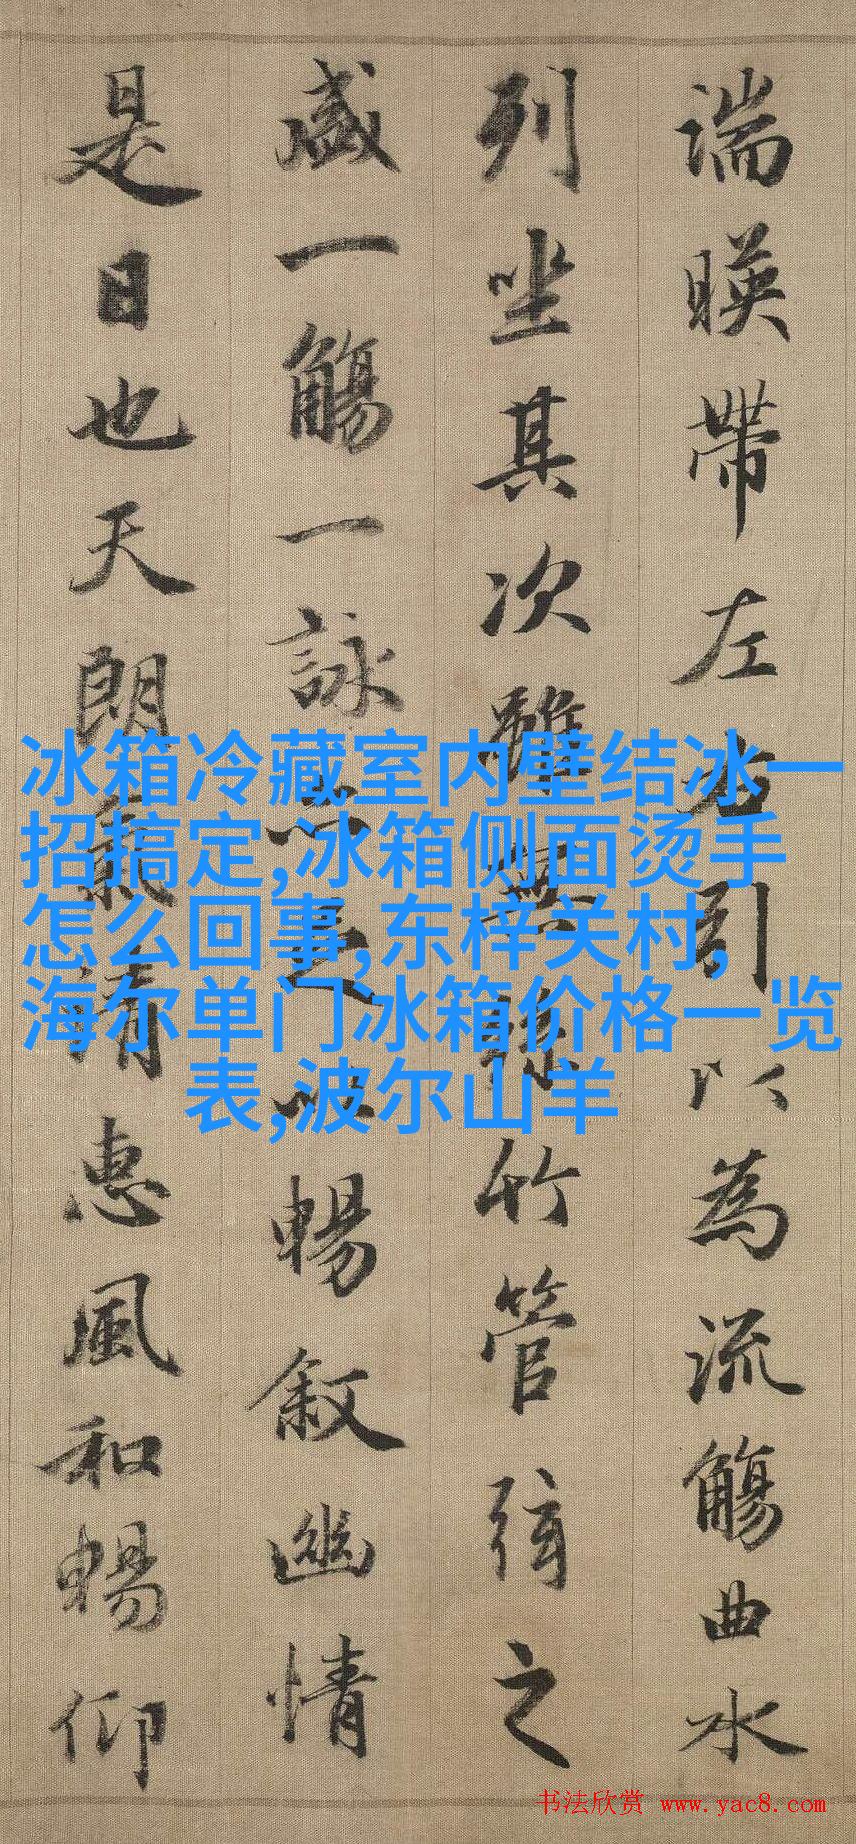 湍暎帶左右引以為流觴曲水
列坐其次雖無絲竹管弦之
盛一觴一詠亦足以暢叙幽情
是日也天朗氣清惠風和暢仰
冰箱冷藏室内壁结冰一
招搞定,冰箱侧面烫手
怎么回事,东梓关村,
海尔单门冰箱价格一览
表,波尔山羊
书法欣赏 www.yac8.com